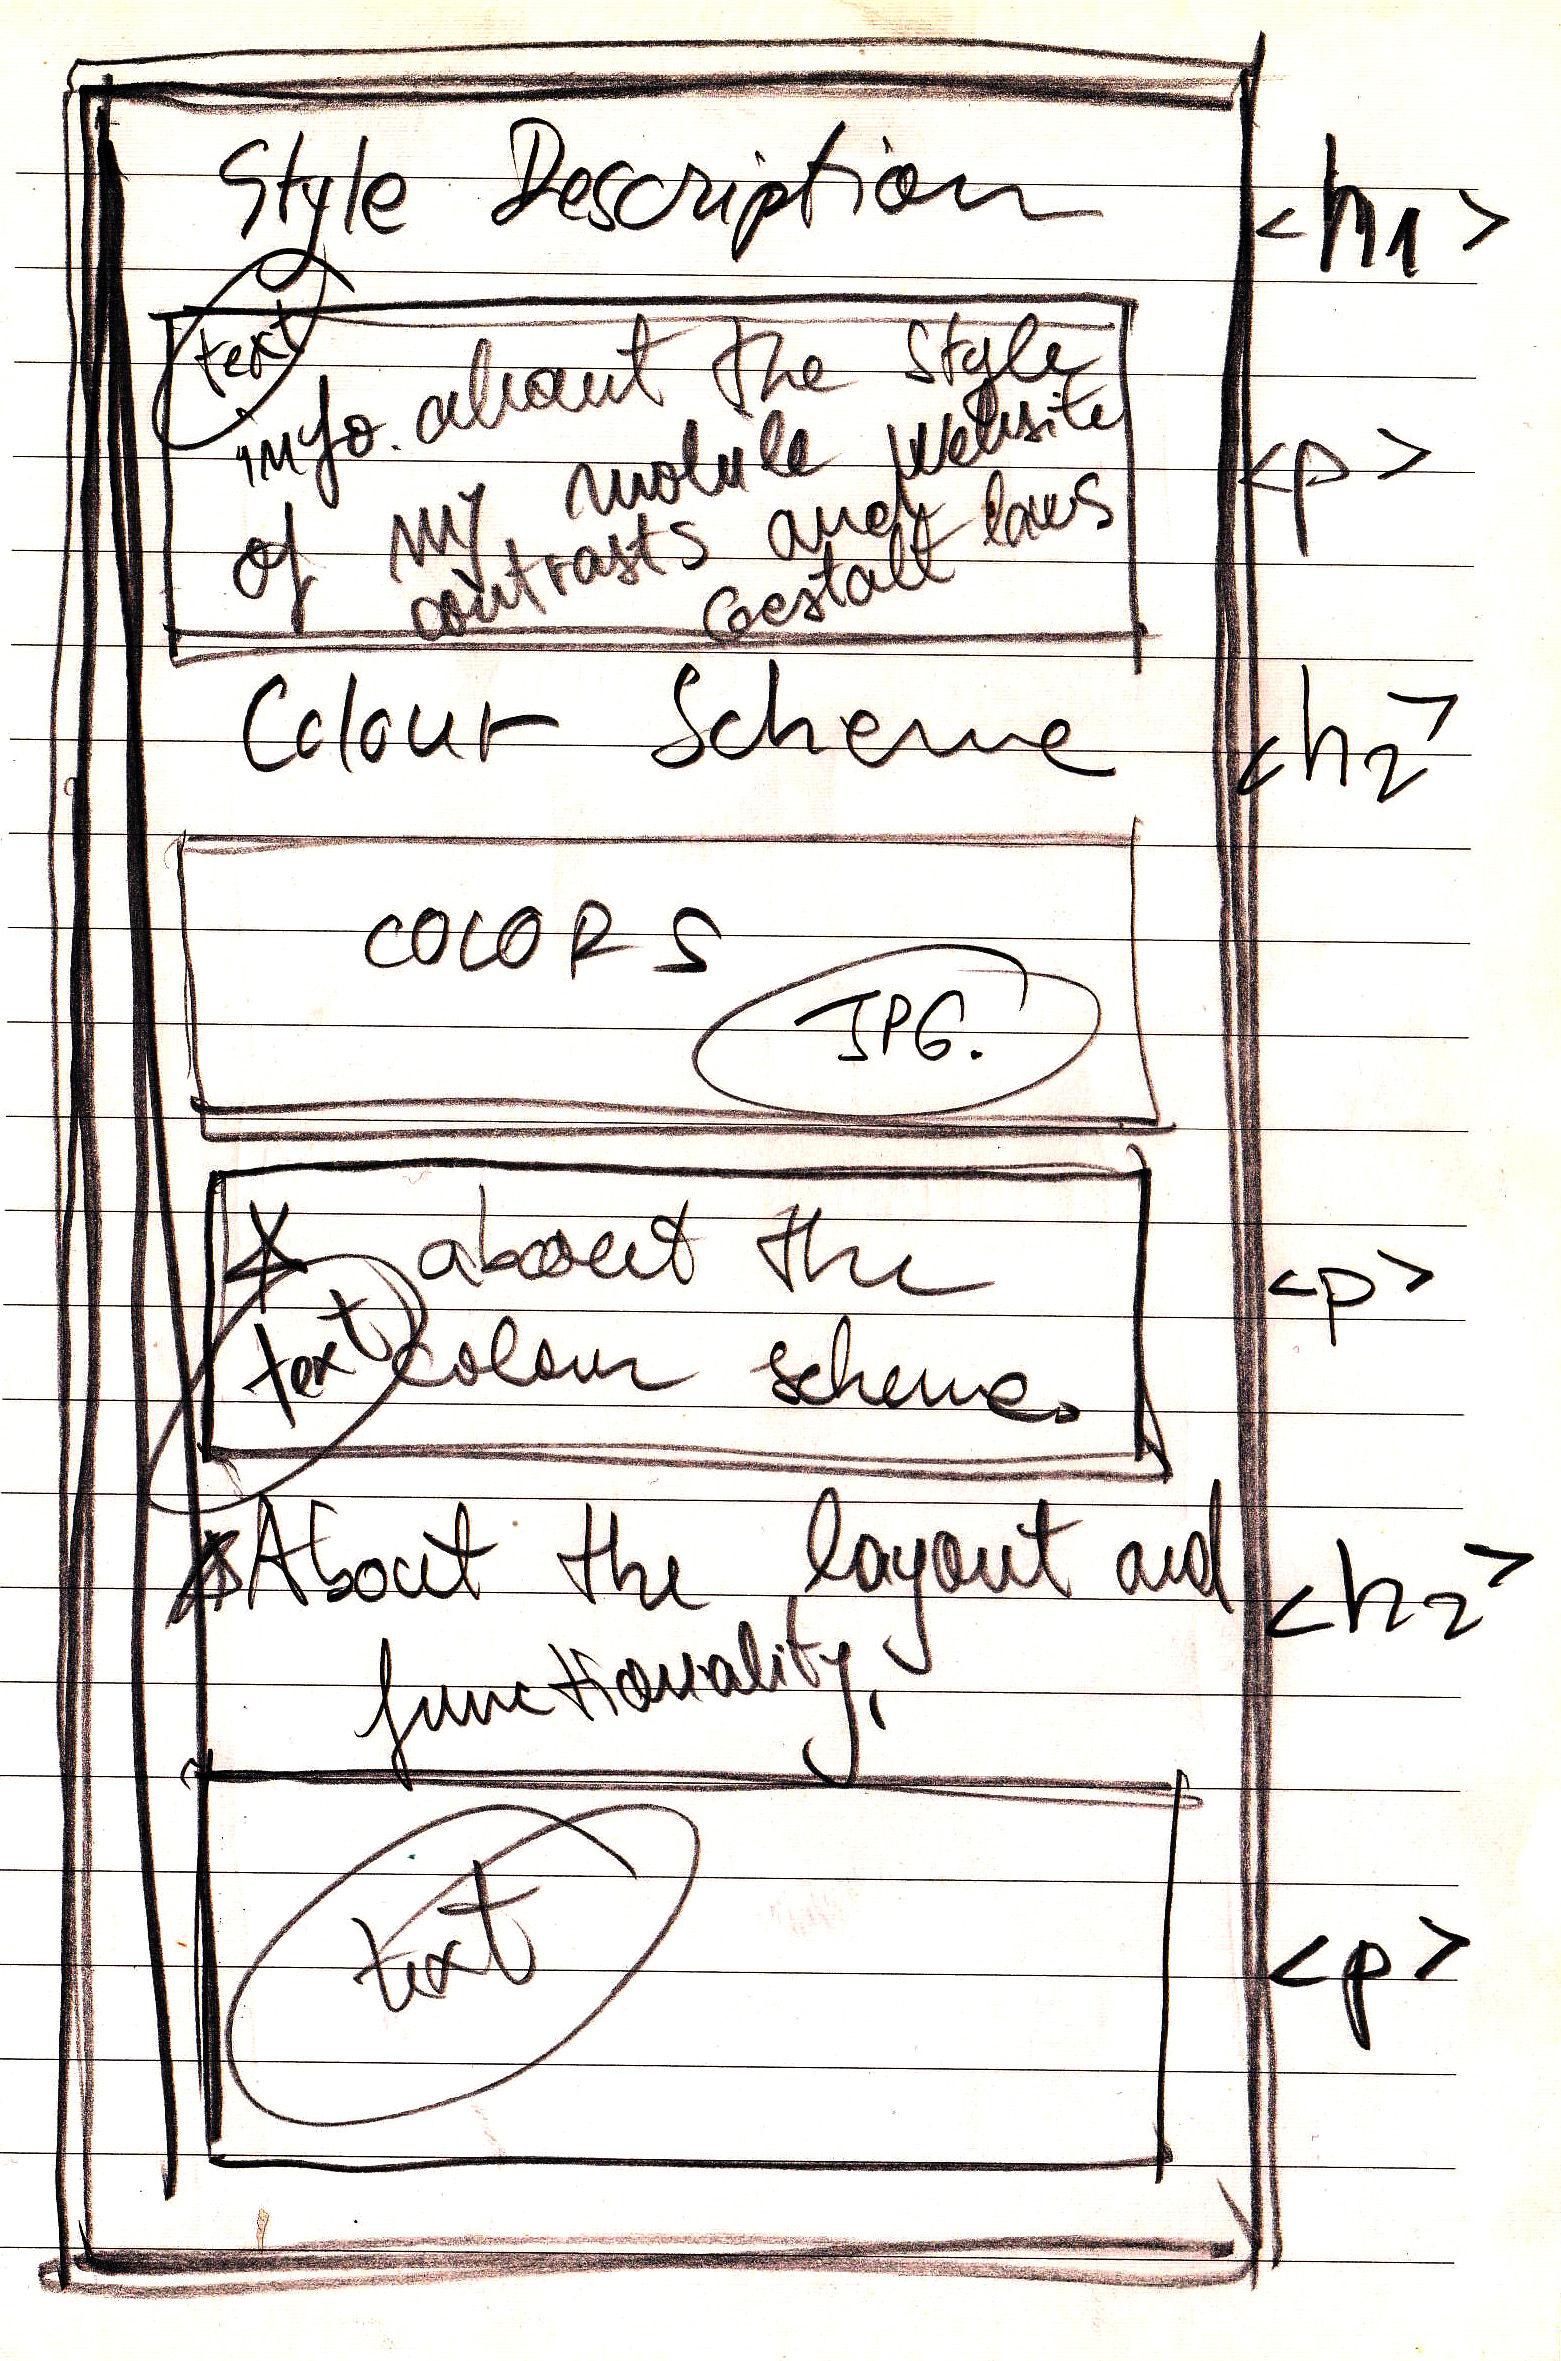 Style Description <h1>
text
info. about the style
of my mobile website <p>
contrasts and laws
Gestalt
Colour Scheme <h2>
COLORS
JPG.
about the <p>
text colour scheme.
About the layout and <h2>
functionality.
text <p>